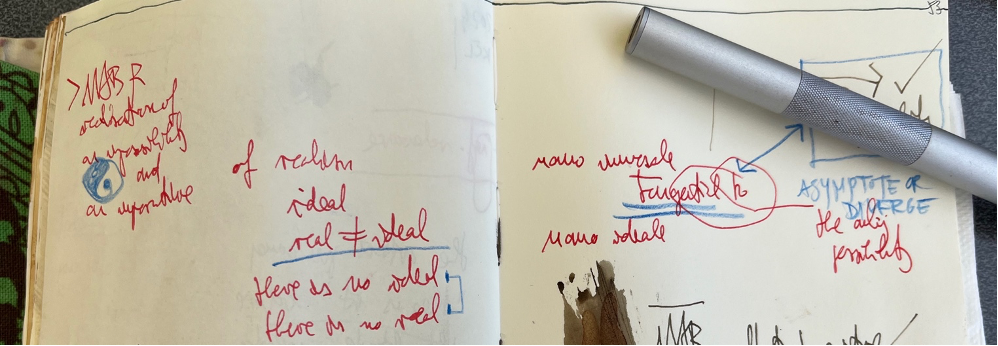 > MAB R
realisation of
an impossibility
and
an imperative
of realism
ideal
real ≠ ideal
there is no ideal
there is no real
53
mano
tangential to
mano ideale
ASYMPTOTE OR
DIVERGE
the only
possibility
MAB